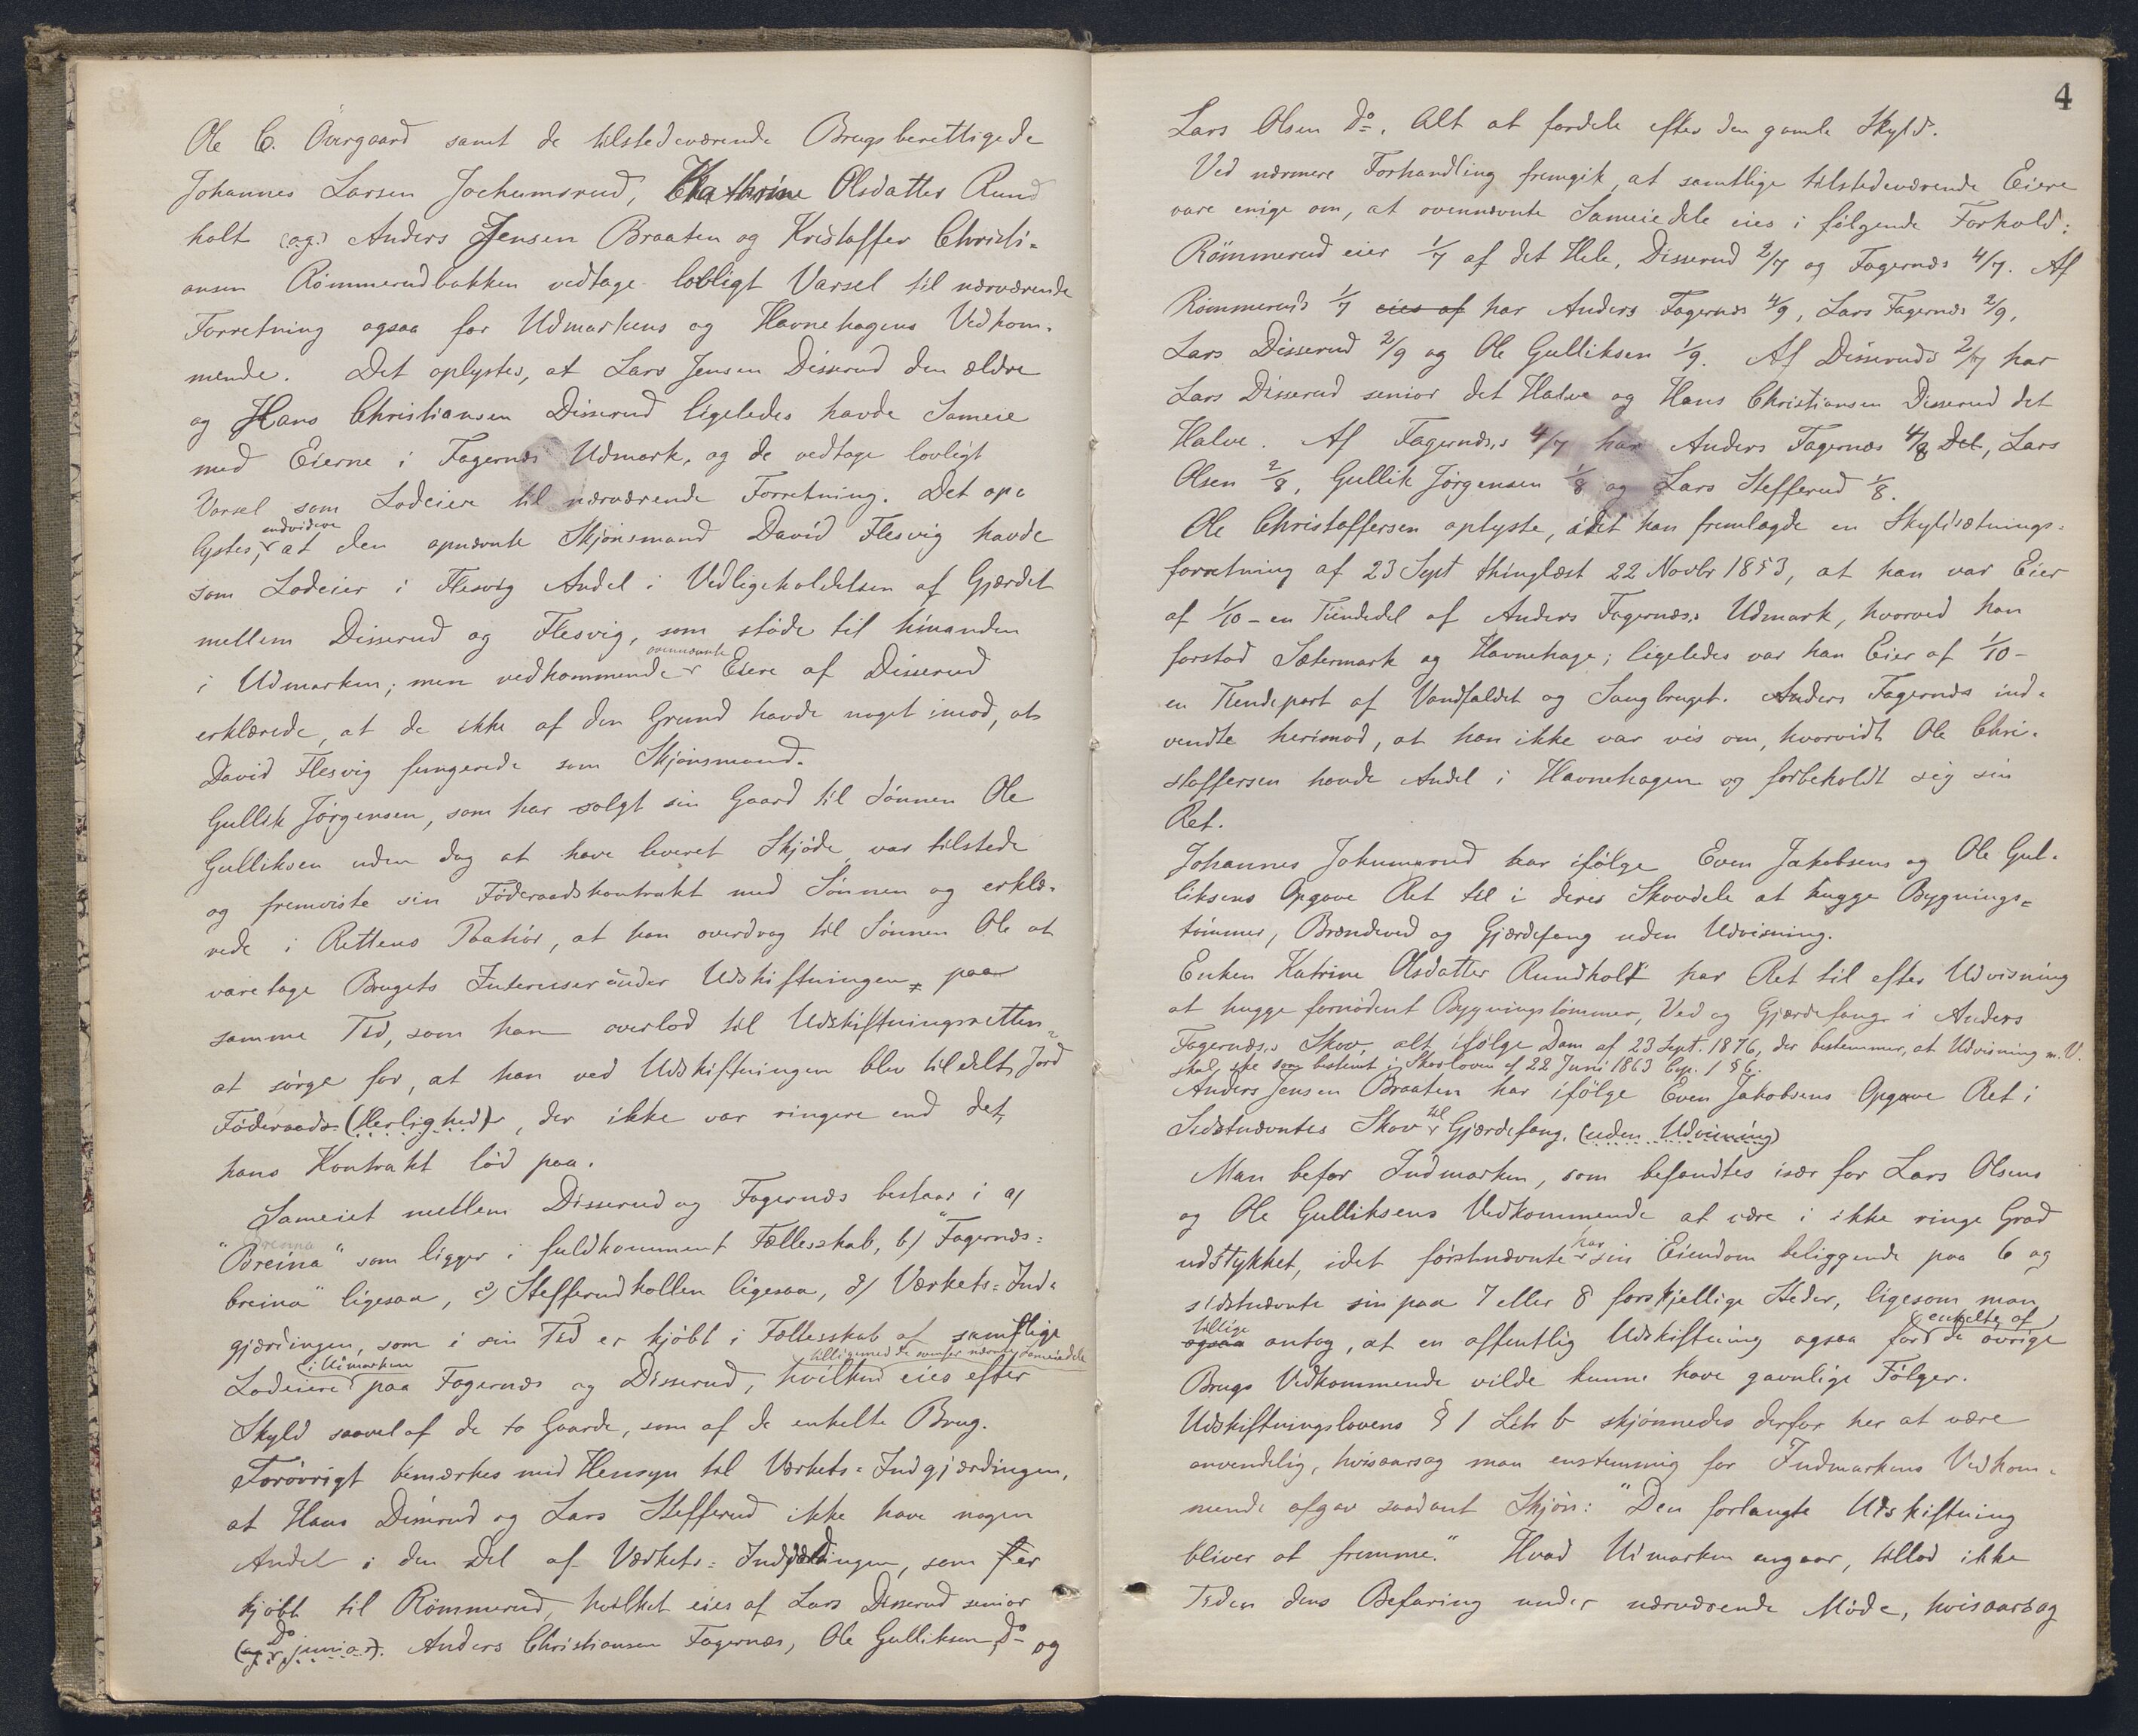 Ole C. Overgaard samt de tilstedeværende Brugsberettigede
Johannes Larsen Jochumsrud, Kathrine Olsdatter Rund
holt (og) Anders Jensen Braaten og Kristoffer Christi-
ansen Römmerudbakken vedtage lovligt Varsel til nærværende
Forretning ogsaa for Udmarkens og Havnehagens Vedkom-
mende. Det oplystes, at Lars Jensen Disserud den ældre
og Hans Christiansen Disserud ligeledes havde Sameie
med Eierne i Fagernæs Udmark, og de vedtage lovligt
Varsel som Lodeiere til nærværende Forretning. Det op-
lystes, endvidere at den opnævnte Skjönsmand David Flesvig havde
som Lodeier i Flesvig Andel i Vedligeholdelsen af Gjærdet
mellem Disserud og Flesvig, som støde til hinanden
i Udmarken; men vedkommende ovennævnte Eiere af Disserud
erklærede, at de ikke af den Grund havde noget imod, at
David Flesvig fungerede som Skjönsmand.
Gullik Jörgensen, som har solgt sin Gaard til Sönnen Ole
Gulliksen uden dog at have leveret Skjöde, var tilstede
og fremviste sin Föderaadskontrakt med Sönnen og erklæ-
rede i Rettens Paahör, at han overdrog til Sönnen Ole at
varetage Brugets Interesser under Udskiftningen, paa
samme Tid, som han overlod til Udskiftningsretten
at sörge for, at han ved Udskiftningen blev tildelt Jord
Föderaads (Herlighed), der ikke var ringere end det,
hans Kontrakt löd paa.
Sameiet mellem Disserud og Fagernæs bestaar i a)
"Breina" som ligger i fuldkomment Fællesskab, b) "Fagernæs-
breina" ligesaa, c) Stefferudkollen ligesaa, d) Værkets-Ind-
gjærdingen, som i sin Tid er kjöbt i Fællesskab af samtlige
Lodeiere i Udmarken paa Fagernæs og Disserud, hvilken tilligemed de ovenfor nævnte Sameiedele eies efter
Skyld saavel af de to Gaarde, som af de enkelte Brug.
Forövrigt bemærkes med Hensyn til Værkets-Indgjærdingen,
at Hans Disserud og Lars Stefferud ikke have nogen
Andel i den Del af Værkets-Indgjærdingen, som er
kjöbt til Römmerud, hvilket eies af Lars Disserud senior
(og Do junior). Anders Christiansen Fagernæs, Ole Gulliksen Do og
4
Lars Olsen Do. Alt at fordele efter den gamle Skyld.
Ved nærmere Forhandling fremgik, at samtlige tilstedeværende Eiere
vare enige om, at ovennævnte Sameiedele eies i fölgende Forhold:
Römmerud eier 1/7 af det Hele, Disserud 2/7 og Fagernæs 4/7. Af
Römmeruds 1/7 eies af har Anders Fagernæs 4/9, Lars Fagernæs 2/9,
Lars Disserud 2/9 og Ole Gulliksen 1/9. Af Disseruds 2/7 har
Lars Disserud senior det Halve og Hans Christiansen Disserud det
Halve. Af Fagernæs's 4/7 har Anders Fagernæs 4/8 Del, Lars
Olsen 2/8, Gullik Jörgensen 1/8 og Lars Stefferud 1/8.
Ole Christoffersen oplyste, idet han fremlagde en Skyldsætnings-
forretning af 23 Sept thinglæst 22 Novbr 1853, at han var Eier
af 1/10 - en Tiendedel af Anders Fagernæs's Udmark, hvorved han
forstod Sætermark og Havnehage; ligeledes var han Eier af 1/10 -
en Tiendepart af Vandfaldet og Saugbruget. Anders Fagernæs ind-
vendte herimod, at han ikke var vis om, hvorvidt Ole Chri-
stoffersen havde Andel i Havnehagen og forbeholdt sig sin
Ret.
Johannes Jokumsrud har ifölge Even Jakobsens og Ole Gul-
liksens Opgave Ret til i deres Skovdele at hugge Bygnings-
tömmer, Brændeved og Gjærdefang uden Udvisning.
Enken Katrine Olsdatter Rundholt har Ret til efter Udvisning
at hugge fornödent Bygningstömmer, Ved og Gjærdefang i Anders
Fagernæs's Skov, alt ifölge Dom af 23 Sept. 1876, der bestemmer, at Udvisning m. V.
skal ske som bestemt i Skovloven af 22 Juni 1863 Cap. 1 § 6.
Anders Jensen Braaten har ifölge Even Jakobsens Opgave Ret i
Sidstnævntes Skov til Gjærdefang. (uden Udvisning)
Man befor Indmarken, som befandtes især for Lars Olsens
og Ole Gulliksens Vedkommende at være i ikke ringe Grad
udstykket, idet förstnævnte har sin Eiendom beliggende paa 6 og
sidstnævnte sin paa 7 eller 8 forskjellige Steder, ligesom man
ogsaa tillige antog, at en offentlig Udskiftning ogsaa for enkelte af de övrige
Brugs Vedkommende vilde kunne have gavnlige Fölger.
Udskiftningslovens § 1 Litr b skjönnedes derfor her at være
anvendelig, hvisaarsag man enstemmig for Indmarkens Vedkom-
mende afgav saadant Skjön: "Den forlangte Udskiftning
bliver at fremme." Hvad Udmarken angaar, tillod ikke
Tiden dens Befaring under nærværende Möde, hvisaarsag